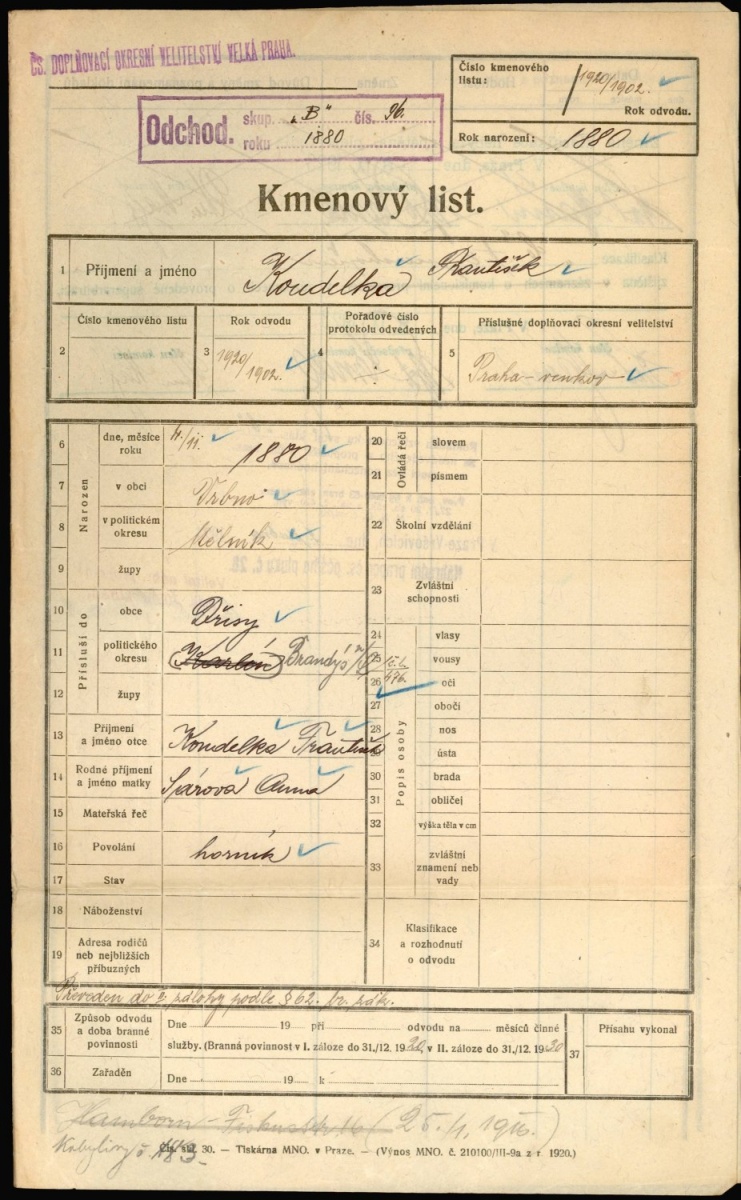 ČS. DOPLŇOVACÍ OKRESNÍ VELITELSTVÍ VELKÁ PRAHA.
Odchod. skup. „B" čís. 96.
roku 1880
Číslo kmenového listu: 1920/1902.
Rok odvodu.
Rok narození: 1880
Kmenový list.
1 Příjmení a jméno Koudelka František
2 Číslo kmenového listu
3 Rok odvodu 1920/1902.
4 Pořadové číslo protokolu odvedených
5 Příslušné doplňovací okresní velitelství Praha-venkov
Narozen
6 dne, měsíce roku 4./11. 1880
7 v obci Vrbno
8 v politickém okresu Mělník
9 župy
Přísluší do
10 obce Dřísy
11 politického okresu Karlín Brandýs n/L
12 župy
13 Příjmení a jméno otce Koudelka František
14 Rodné příjmení a jméno matky Anna
15 Mateřská řeč
16 Povolání horník
17 Stav
18 Náboženství
19 Adresa rodičů neb nejbližších příbuzných
Ovládá řeči
20 slovem
21 písmem
22 Školní vzdělání
23 Zvláštní schopnosti
Popis osoby
24 vlasy
25 vousy
26 oči
27 obočí
28 nos
29 ústa
30 brada
31 obličej
32 výška těla v cm
33 zvláštní znamení neb vady
34 Klasifikace a rozhodnutí o odvodu
Převeden do 2. zálohy podle § 62. br. zák.
35 Způsob odvodu a doba branné povinnosti
Dne 19 při odvodu na měsíců činné
služby. (Branná povinnost v I. záloze do 31./12. 1920, v II. záloze do 31./12. 1930
36 Zařaděn
Dne 19 k
37 Přísahu vykonal
Hamborn 16 (25./1. 1916)
Kobylisy č. 183.
30. — Tiskárna MNO. v Praze. — (Výnos MNO. č. 210100/III-9a z r. 1920.)